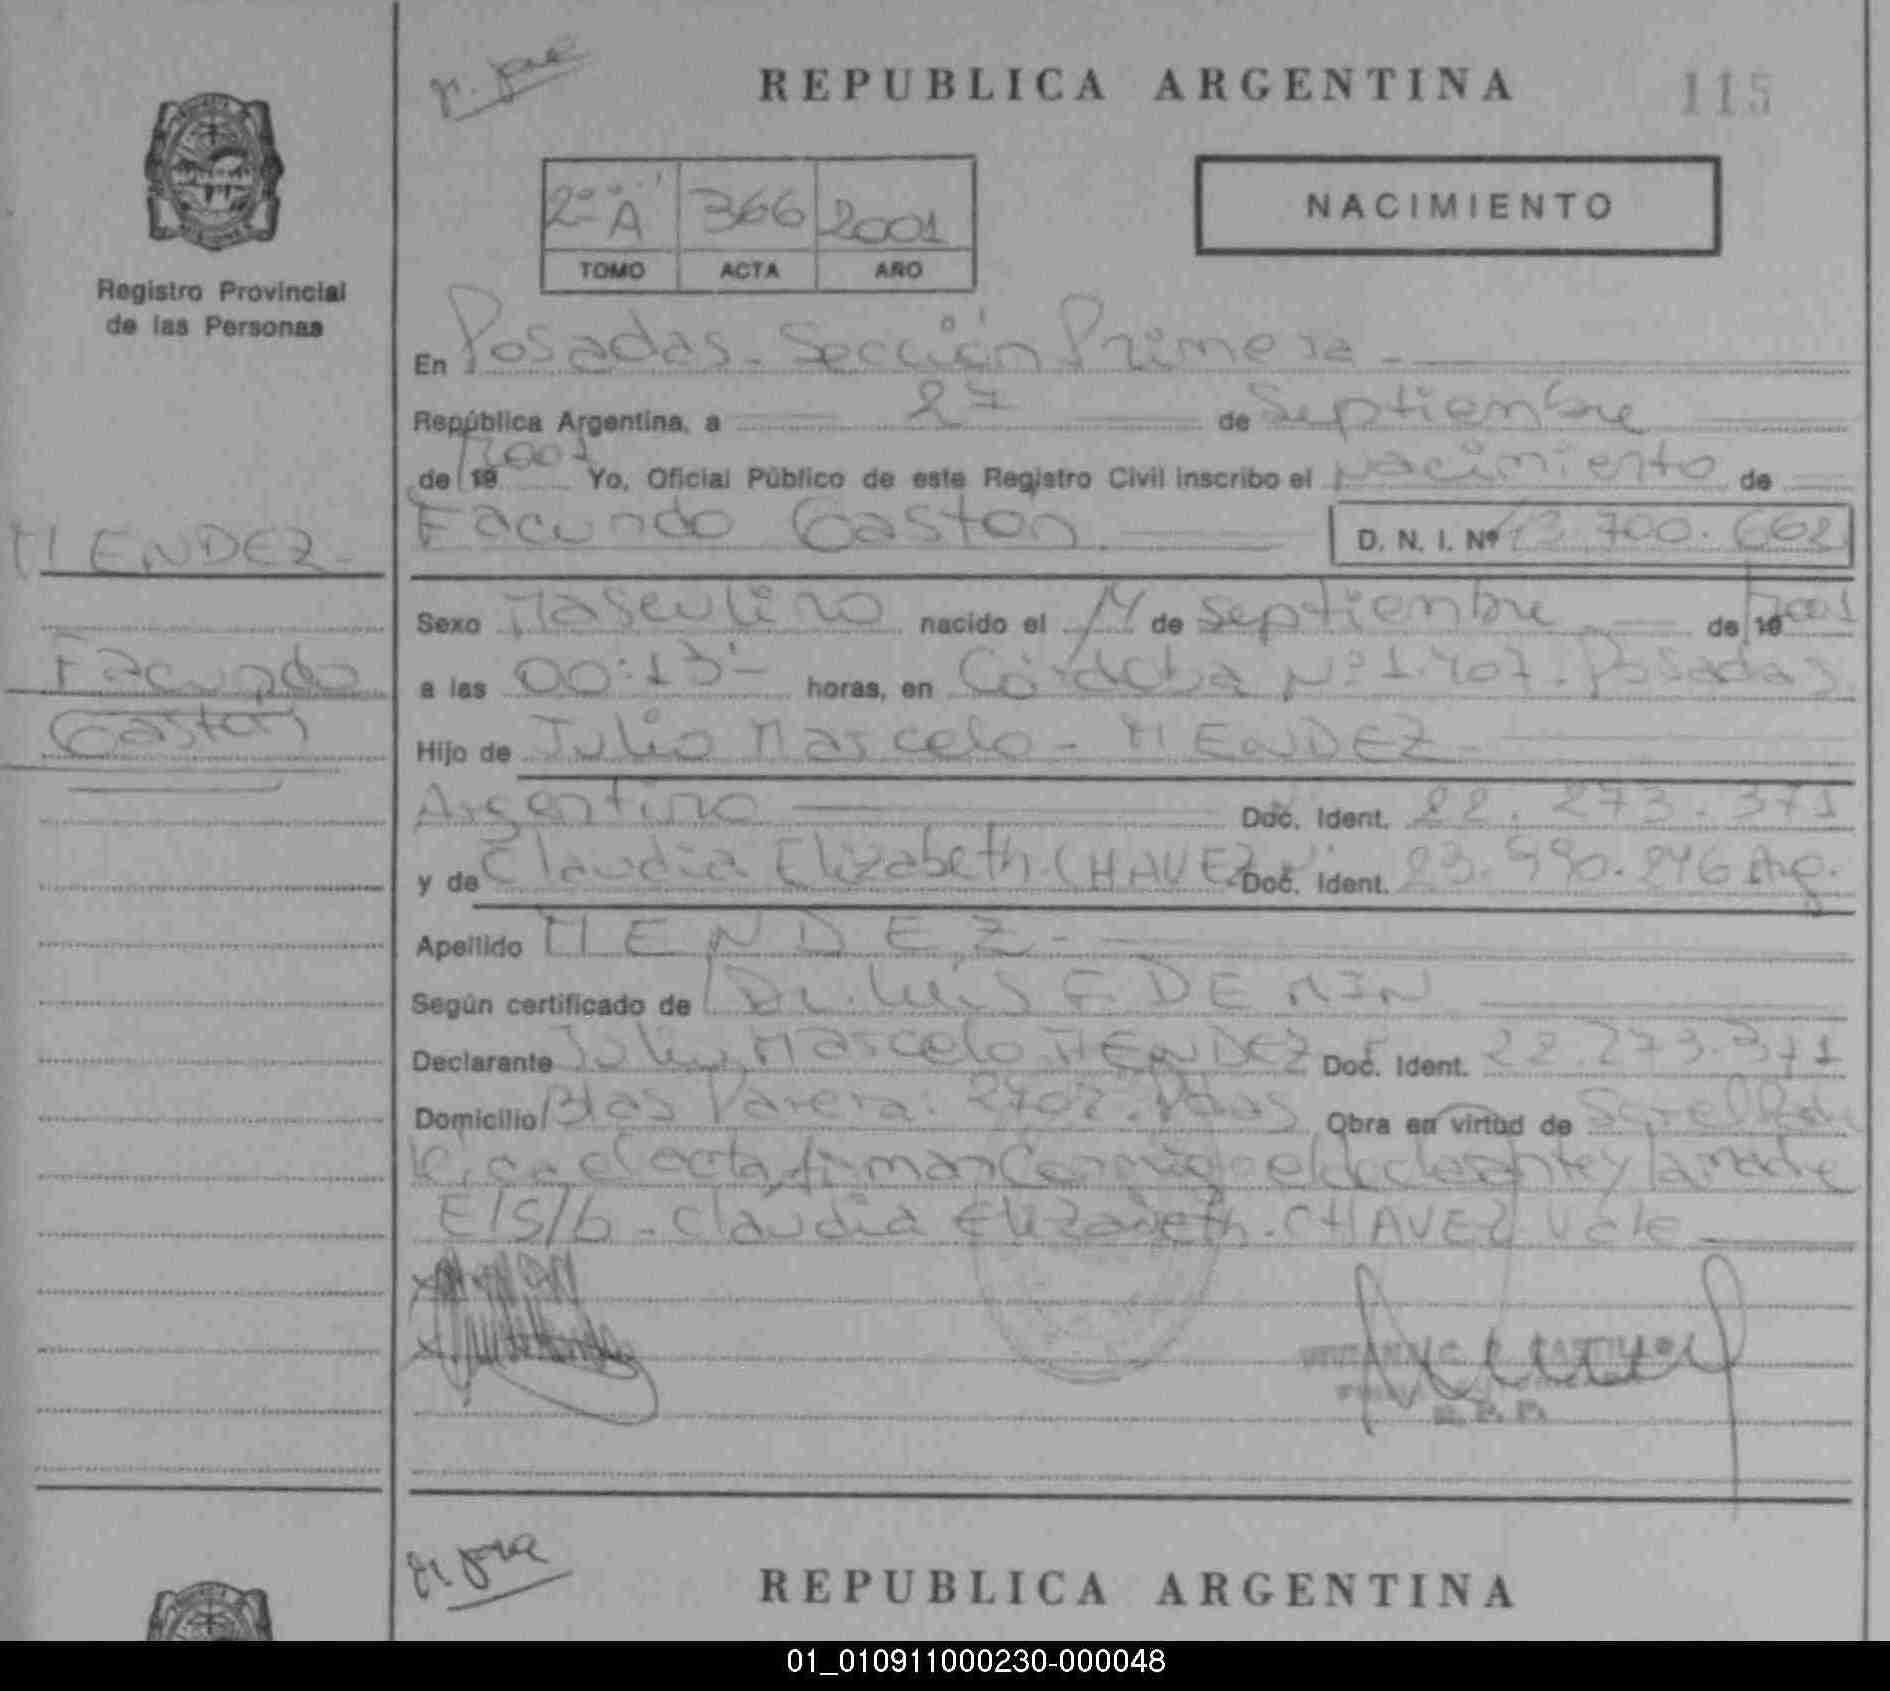 REPUBLICA ARGENTINA
115
NACIMIENTO
2º A 366 2001
TOMO ACTA AÑO
Registro Provincial
de las Personas
En Posadas - Sección Primera -
República Argentina, a 27 de Septiembre
de 19 2001 Yo, Oficial Público de este Registro Civil inscribo el Nacimiento de
Facundo Gaston D. N. I. Nº 43.700.662
MENDEZ -
Facundo
Gaston
Sexo Masculino nacido el 14 de Septiembre de 19 2001
a las 00:13'- horas, en Córdoba Nº 1.407. Posadas
Hijo de Julio Marcelo - MENDEZ -
Argentino Doc. Ident. 22.273.371
y de Claudia Elizabeth. CHAVEZ Doc. Ident. 23.990.246 Arg.
Apellido MENDEZ -
Según certificado de Dr. Luis F. DEMIN
Declarante Julio Marcelo MENDEZ Doc. Ident. 22.273.371
Domicilio Blas Parera. 2707. Pdas Obra en virtud de
el acta, firman Conmigo el declarante y la madre
E/S/b - Claudia Elizabeth - CHAVEZ Vale
R. P. P.
REPUBLICA ARGENTINA
01_010911000230-000048